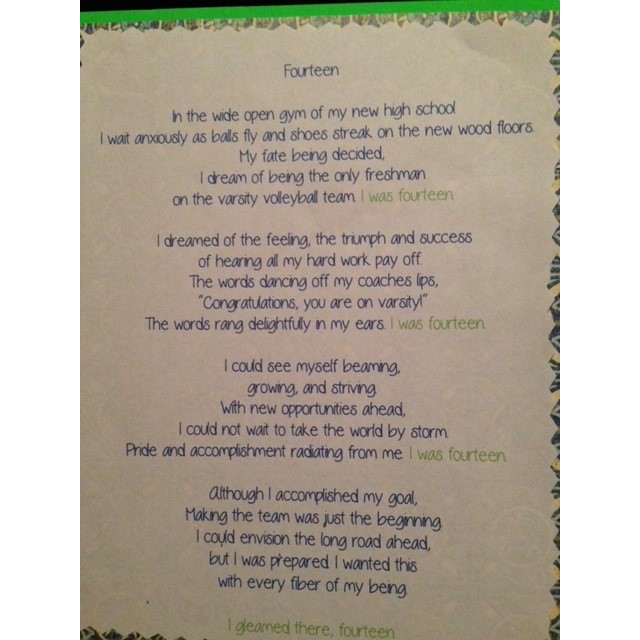 Fourteen
In the wide open gym of my new high school
I wait anxiously as balls fly and shoes streak on the new wood floors.
My fate being decided,
I dream of being the only freshman
on the varsity volleyball team. I was fourteen.
I dreamed of the feeling, the triumph and success
of hearing all my hard work pay off.
The words dancing off my coaches lips,
"Congratulations, you are on varsity!"
The words rang delightfully in my ears. I was fourteen.
I could see myself beaming,
growing, and striving.
With new opportunities ahead,
I could not wait to take the world by storm.
Pride and accomplishment radiating from me. I was fourteen.
Although I accomplished my goal,
Making the team was just the beginning.
I could envision the long road ahead,
but I was prepared. I wanted this
with every fiber of my being.
I gleamed there, fourteen.